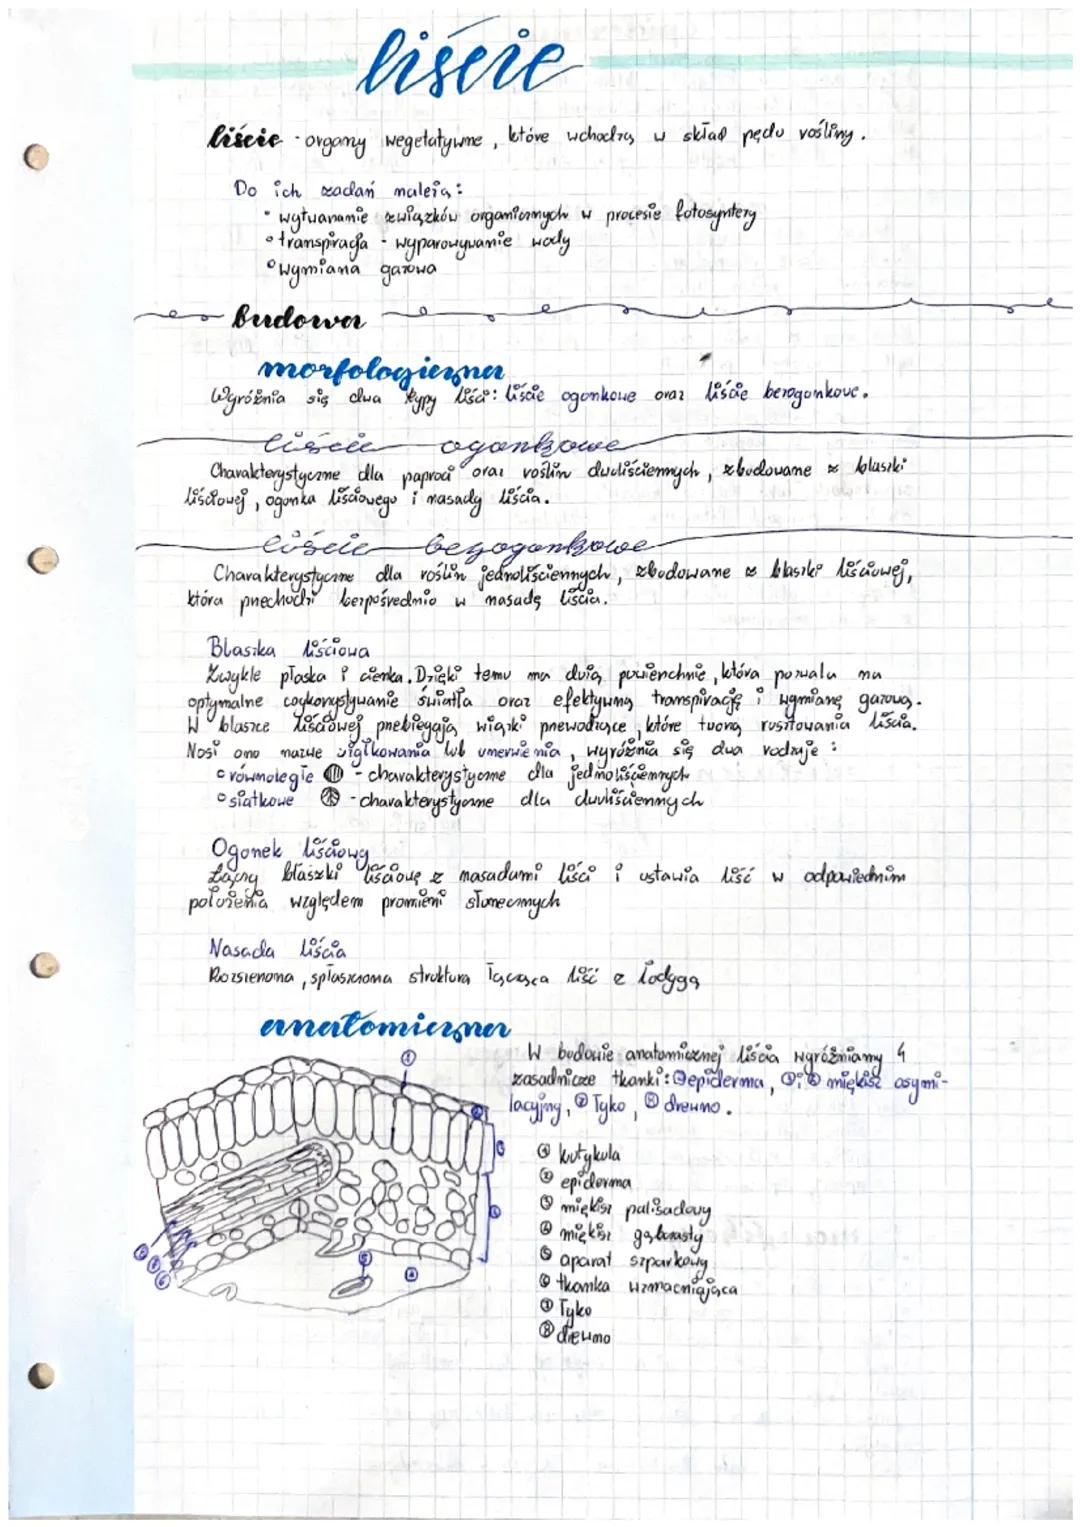 liście
liście - organy wegetatywne, które wchodzą w skład pędu rośliny.
Do ich zadań należą:
• wytwarzanie związków organicznych w procesie fotosyntezy
• transpiracja - wyparowywanie wody
• wymiana gazowa
budowa
morfologiczna
Wyróżnia się dwa typy liści: liście ogonkowe oraz liście bezogonkowe.
liście ogonkowe
Charakterystyczne dla paproci oraz roślin dwuliściennych, zbudowane z blaszki
liściowej, ogonka liściowego i nasady liścia.
liście bezogonkowe
Charakterystyczne dla roślin jednoliściennych, zbudowane z blaszki liściowej,
która przechodzi bezpośrednio w nasadę liścia.
Blaszka liściowa
Zwykle płaska i cienka. Dzięki temu ma dużą powierzchnię, która pozwala na
optymalne wykorzystywanie światła oraz efektywną transpirację i wymianę gazową.
W blaszce liściowej przebiegają wiązki przewodzące, które tworzą rusztowania liścia.
Nosi ono nazwę użyłkowania lub unerwienia, wyróżnia się dwa rodzaje:
• równoległe - charakterystyczne dla jednoliściennych
• siatkowe - charakterystyczne dla dwuliściennych
Ogonek liściowy
Łączy blaszki liściowe z nasadami liści i ustawia liść w odpowiednim
położenia względem promieni słonecznych
Nasada liścia
Rozszerzona, spłaszczona struktura łącząca liść z łodygą
anatomiczna
W budowie anatomicznej liścia wyróżniamy 4
zasadnicze tkanki: ② epiderma, ③ i ④ miękisz asymi-
lacyjny, ⑦ łyko, ⑧ drewno.
① kutykula
② epiderma
③ miękisz palisadowy
④ miękisz gąbczasty
⑤ aparat szparkowy
⑥ tkanka wzmacniająca
⑦ łyko
⑧ drewno